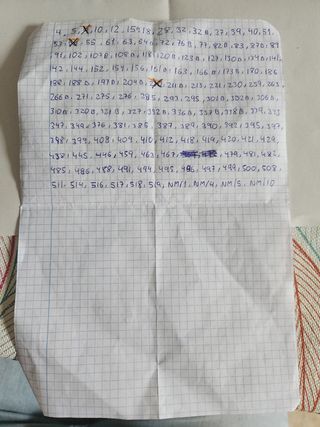 4, 5, 10, 12, 15, 18, 28, 32, 32a, 37, 39, 40, 51,
57, 55, 61, 63, 64a, 72, 76a, 77, 82a, 83, 87a, 89
91, 102, 107a, 108a, 118, 120a, 123a, 129, 130a, 134a, 141
142, 144, 152, 154, 156, 161a, 163, 166a, 173a, 180, 186
188, 188a, 197a, 204a, 211a, 213, 221, 230, 259, 263,
266a, 271, 275, 276, 285, 293, 295, 301a, 302a, 306a,
310a, 320a, 321a, 327, 332a, 336a, 337a, 338a, 339, 343
347, 349, 376, 381, 385, 387, 389, 390, 392, 395, 397,
398, 399, 408, 409, 410, 412, 418, 419, 420, 421, 429,
438, 445, 446, 459, 463, 467, 479, 481, 482,
485, 486, 488, 491, 494, 495, 496, 497, 499, 500, 508,
511, 514, 516, 517, 518, 519, NM/1, NM/4, NM/5, NM/10